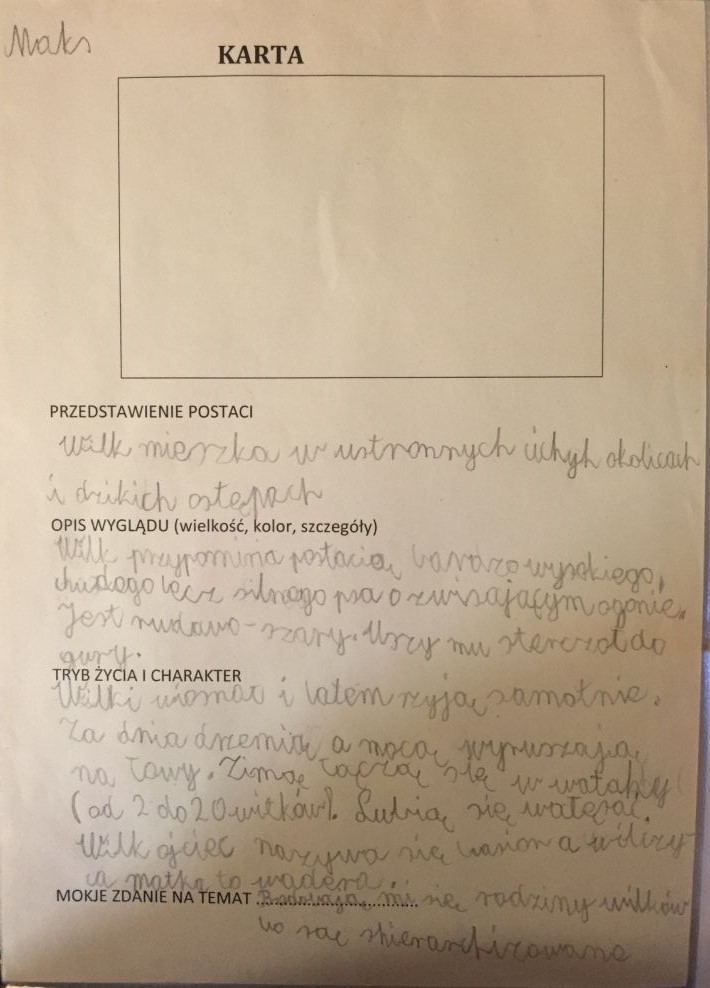 Maks
KARTA
PRZEDSTAWIENIE POSTACI
Wilk mieszka w ustronnych cichyh okolicach
i dzikich ostępach
OPIS WYGLĄDU (wielkość, kolor, szczegóły)
Wilk przypomina postacią bardzo wysokiego,
chudego lecz silnego psa o zwisającym ogonie.
Jest rudawo-szary. Uszy mu sterczą do
gury.
TRYB ŻYCIA I CHARAKTER
Wilki wiosną i latem rzyją samotnie.
Za dnia drzemią a nocą wyruszają
na łowy. Zimą łączą się w watahy
(od 2 do 20 wilków). Lubią się wałęsać.
Wilk ojciec nazywa się basior a wilczy
ca matka to wadera.
MOKJE ZDANIE NA TEMAT Podobają mi się rodziny wilków
bo są shierarchizowane